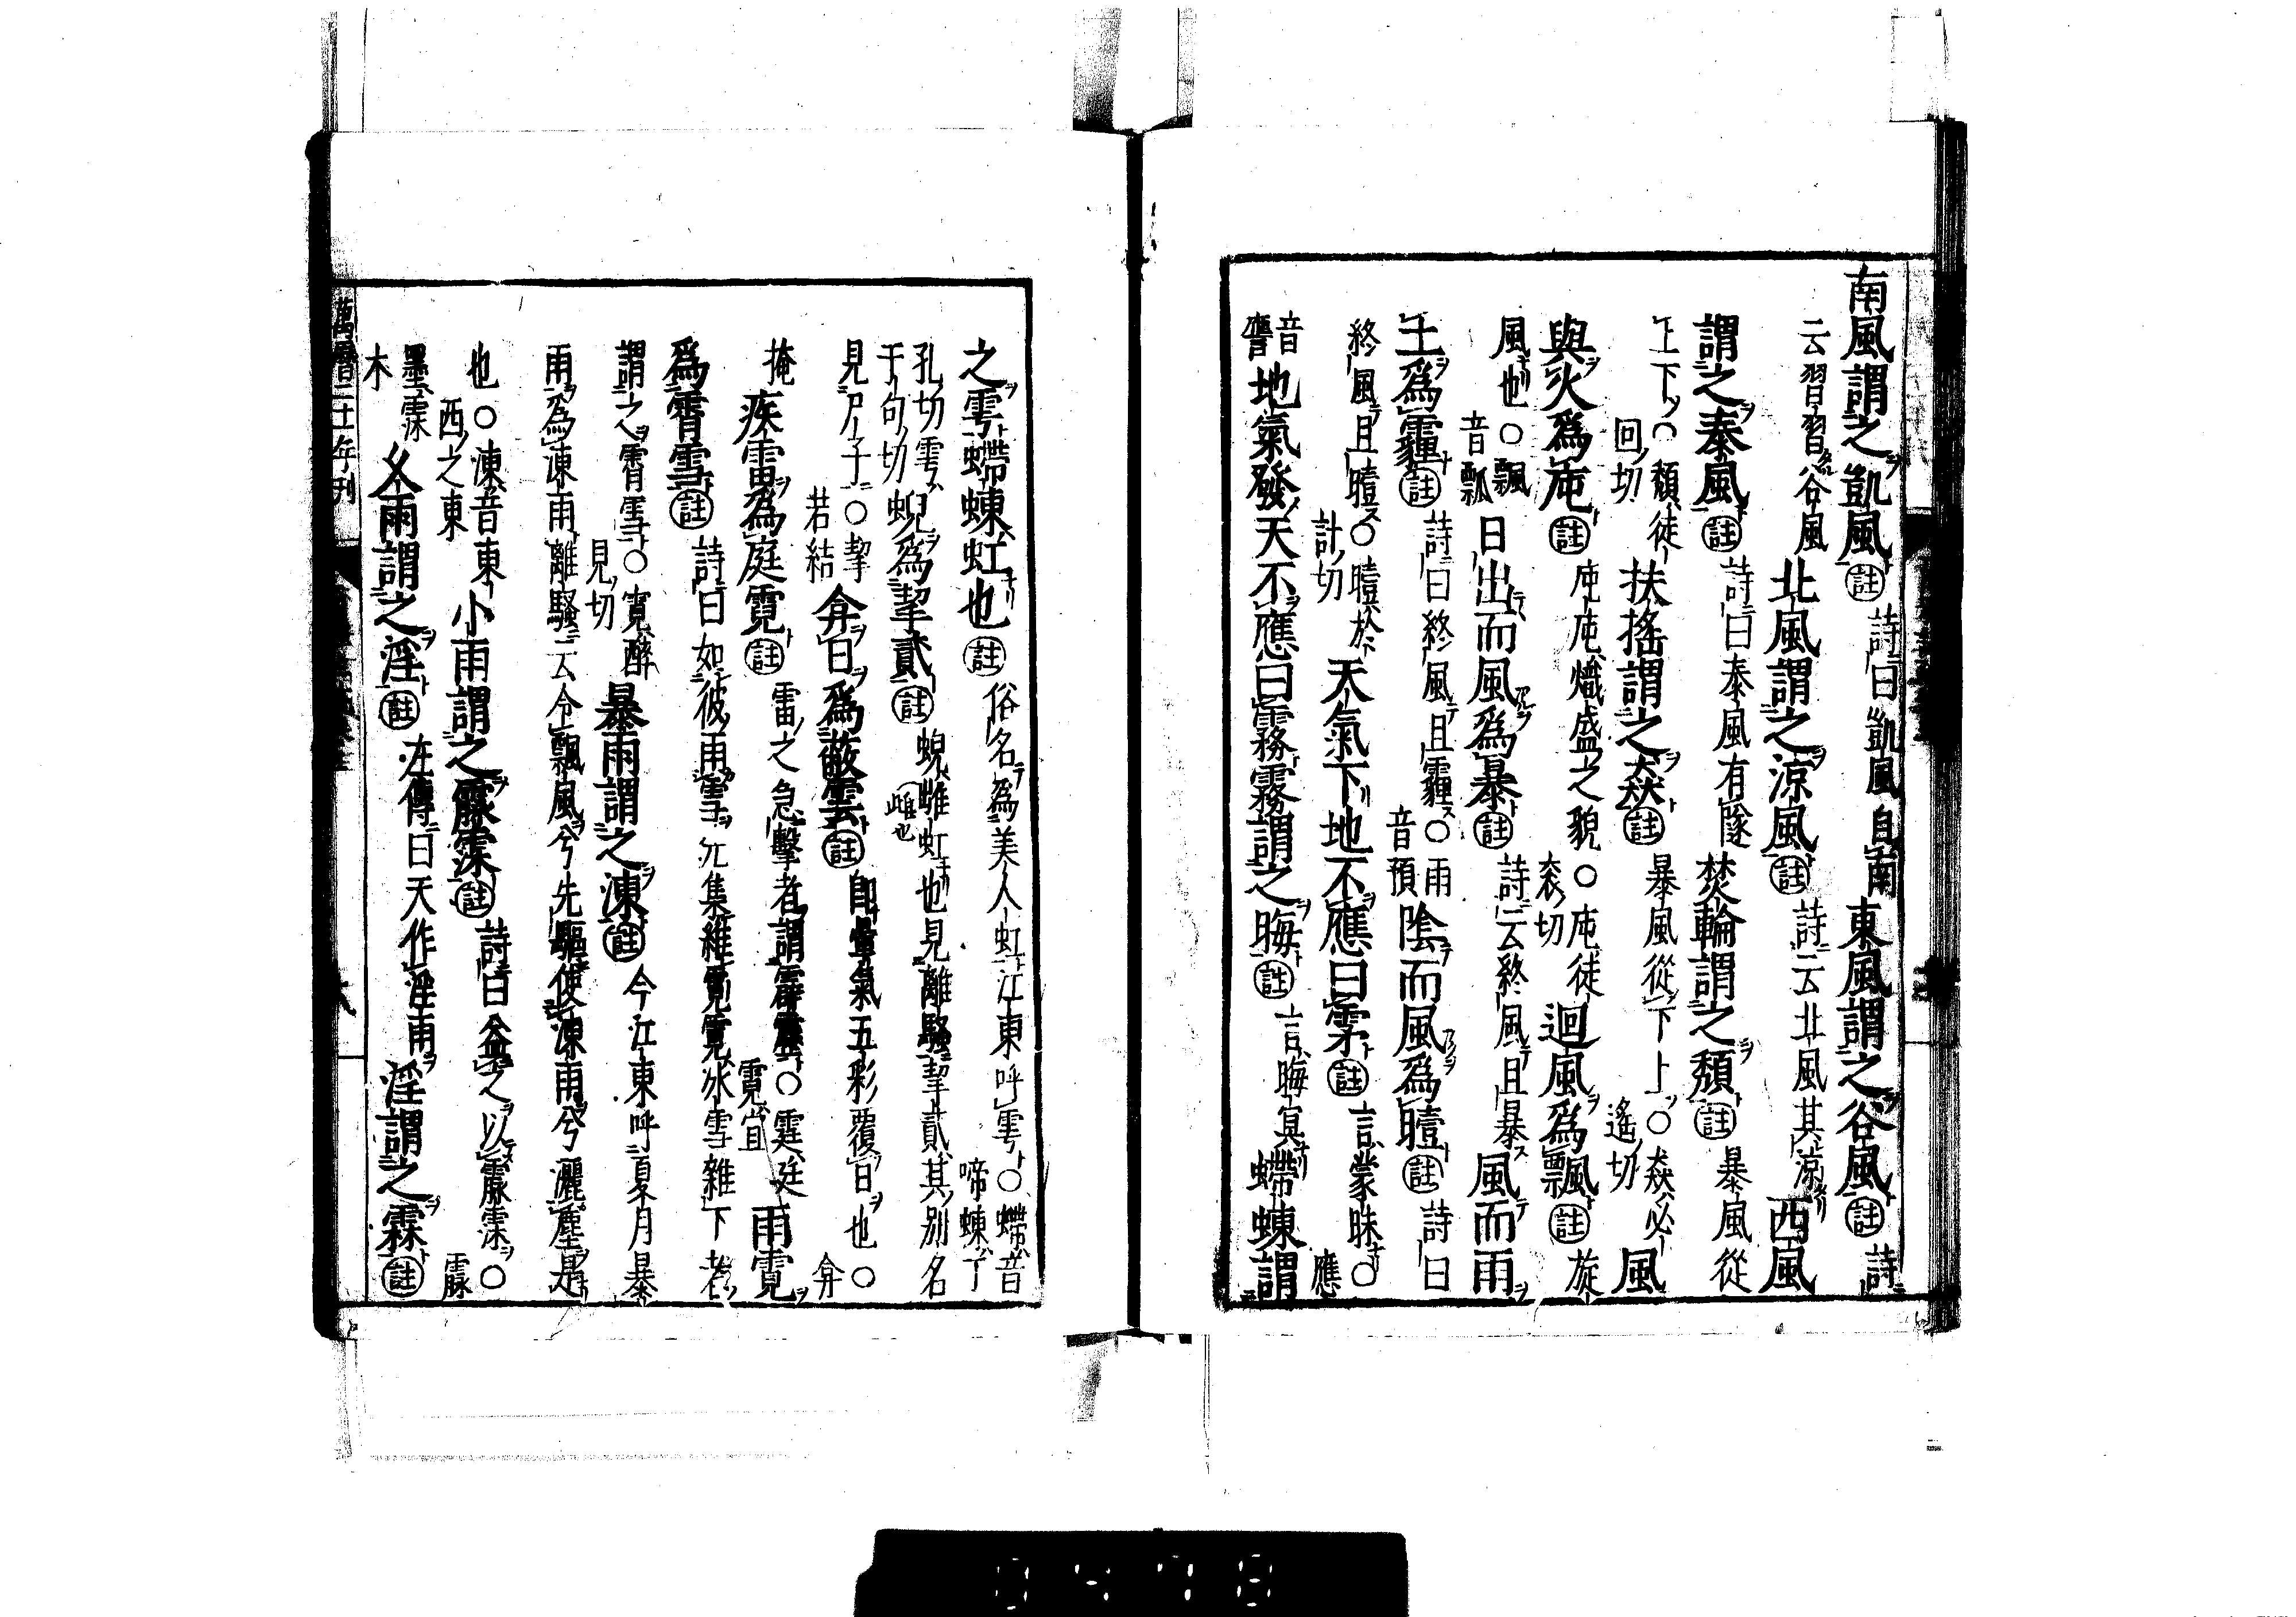 南風謂之凱風註詩曰凱風自南東風謂之谷風註詩
云習習谷風北風謂之涼風註詩云北風其涼西風
謂之泰風註詩曰泰風有隧焚輪謂之頹註暴風從
上下○頹徒回切扶搖謂之猋註暴風從下上○猋必遙切風
與火為庉註庉庉熾盛之貌○庉徒袞切迴風為飄註旋
風也○飄音瓢日出而風為暴註詩云終風且暴風而雨
土為霾註詩曰終風且霾○雨音預陰而風為曀註詩曰
終風且曀○曀於計切天氣下地不應曰雺註言蒙昧○應
音譍地氣發天不應曰霧霧謂之晦註言晦冥螮蝀謂
之雩螮蝀虹也註俗名為美人虹江東呼雩○螮音啼蝀丁
孔切雩于句切蜺為挈貳註蜺雌虹也見離騷挈貳其別名
見尸子○挈若結弇日為蔽雲註即暈氣五彩覆日也○弇
掩疾雷為庭霓註雷之急擊者謂霹靂○霆廷霓宜雨霓
為霄雪註詩曰如彼雨雪先集維霓霓冰雪雜下者
謂之霄雪○霓酥見切暴雨謂之涷註今江東呼夏月暴
雨為涷雨離騷云令飄風兮先驅使涷雨兮灑塵是
也○涷音東西之東小雨謂之霡霂註詩曰益之以霡霂○霡
墨霂木久雨謂之淫註左傳曰天作淫雨淫謂之霖註
萬曆二十年刊